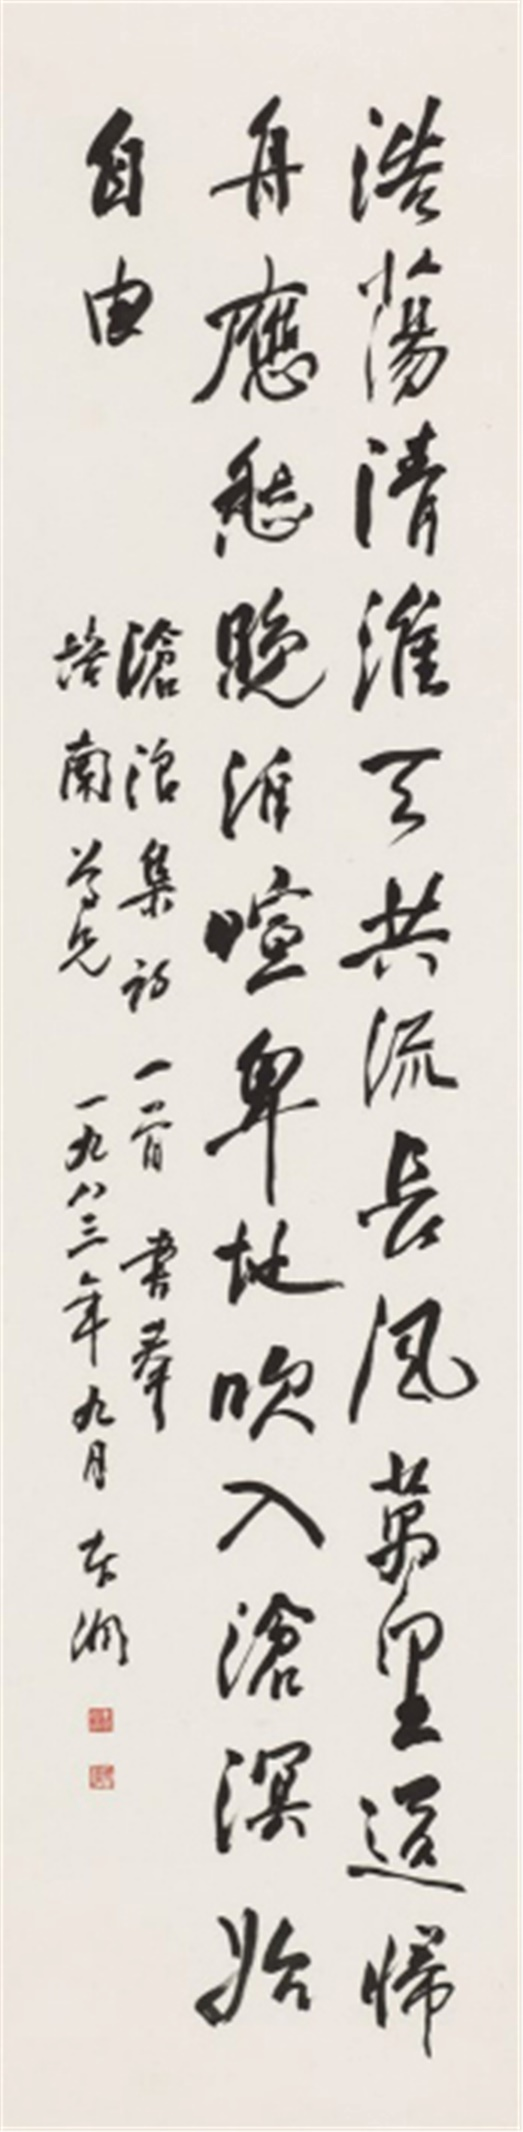 浩蕩清淮天共流長風萬里送歸
舟應愁晚泊喧卑地吹入滄溟始
自由
滄浪集詩一首書奉
培南尊兄
一九八三年九月